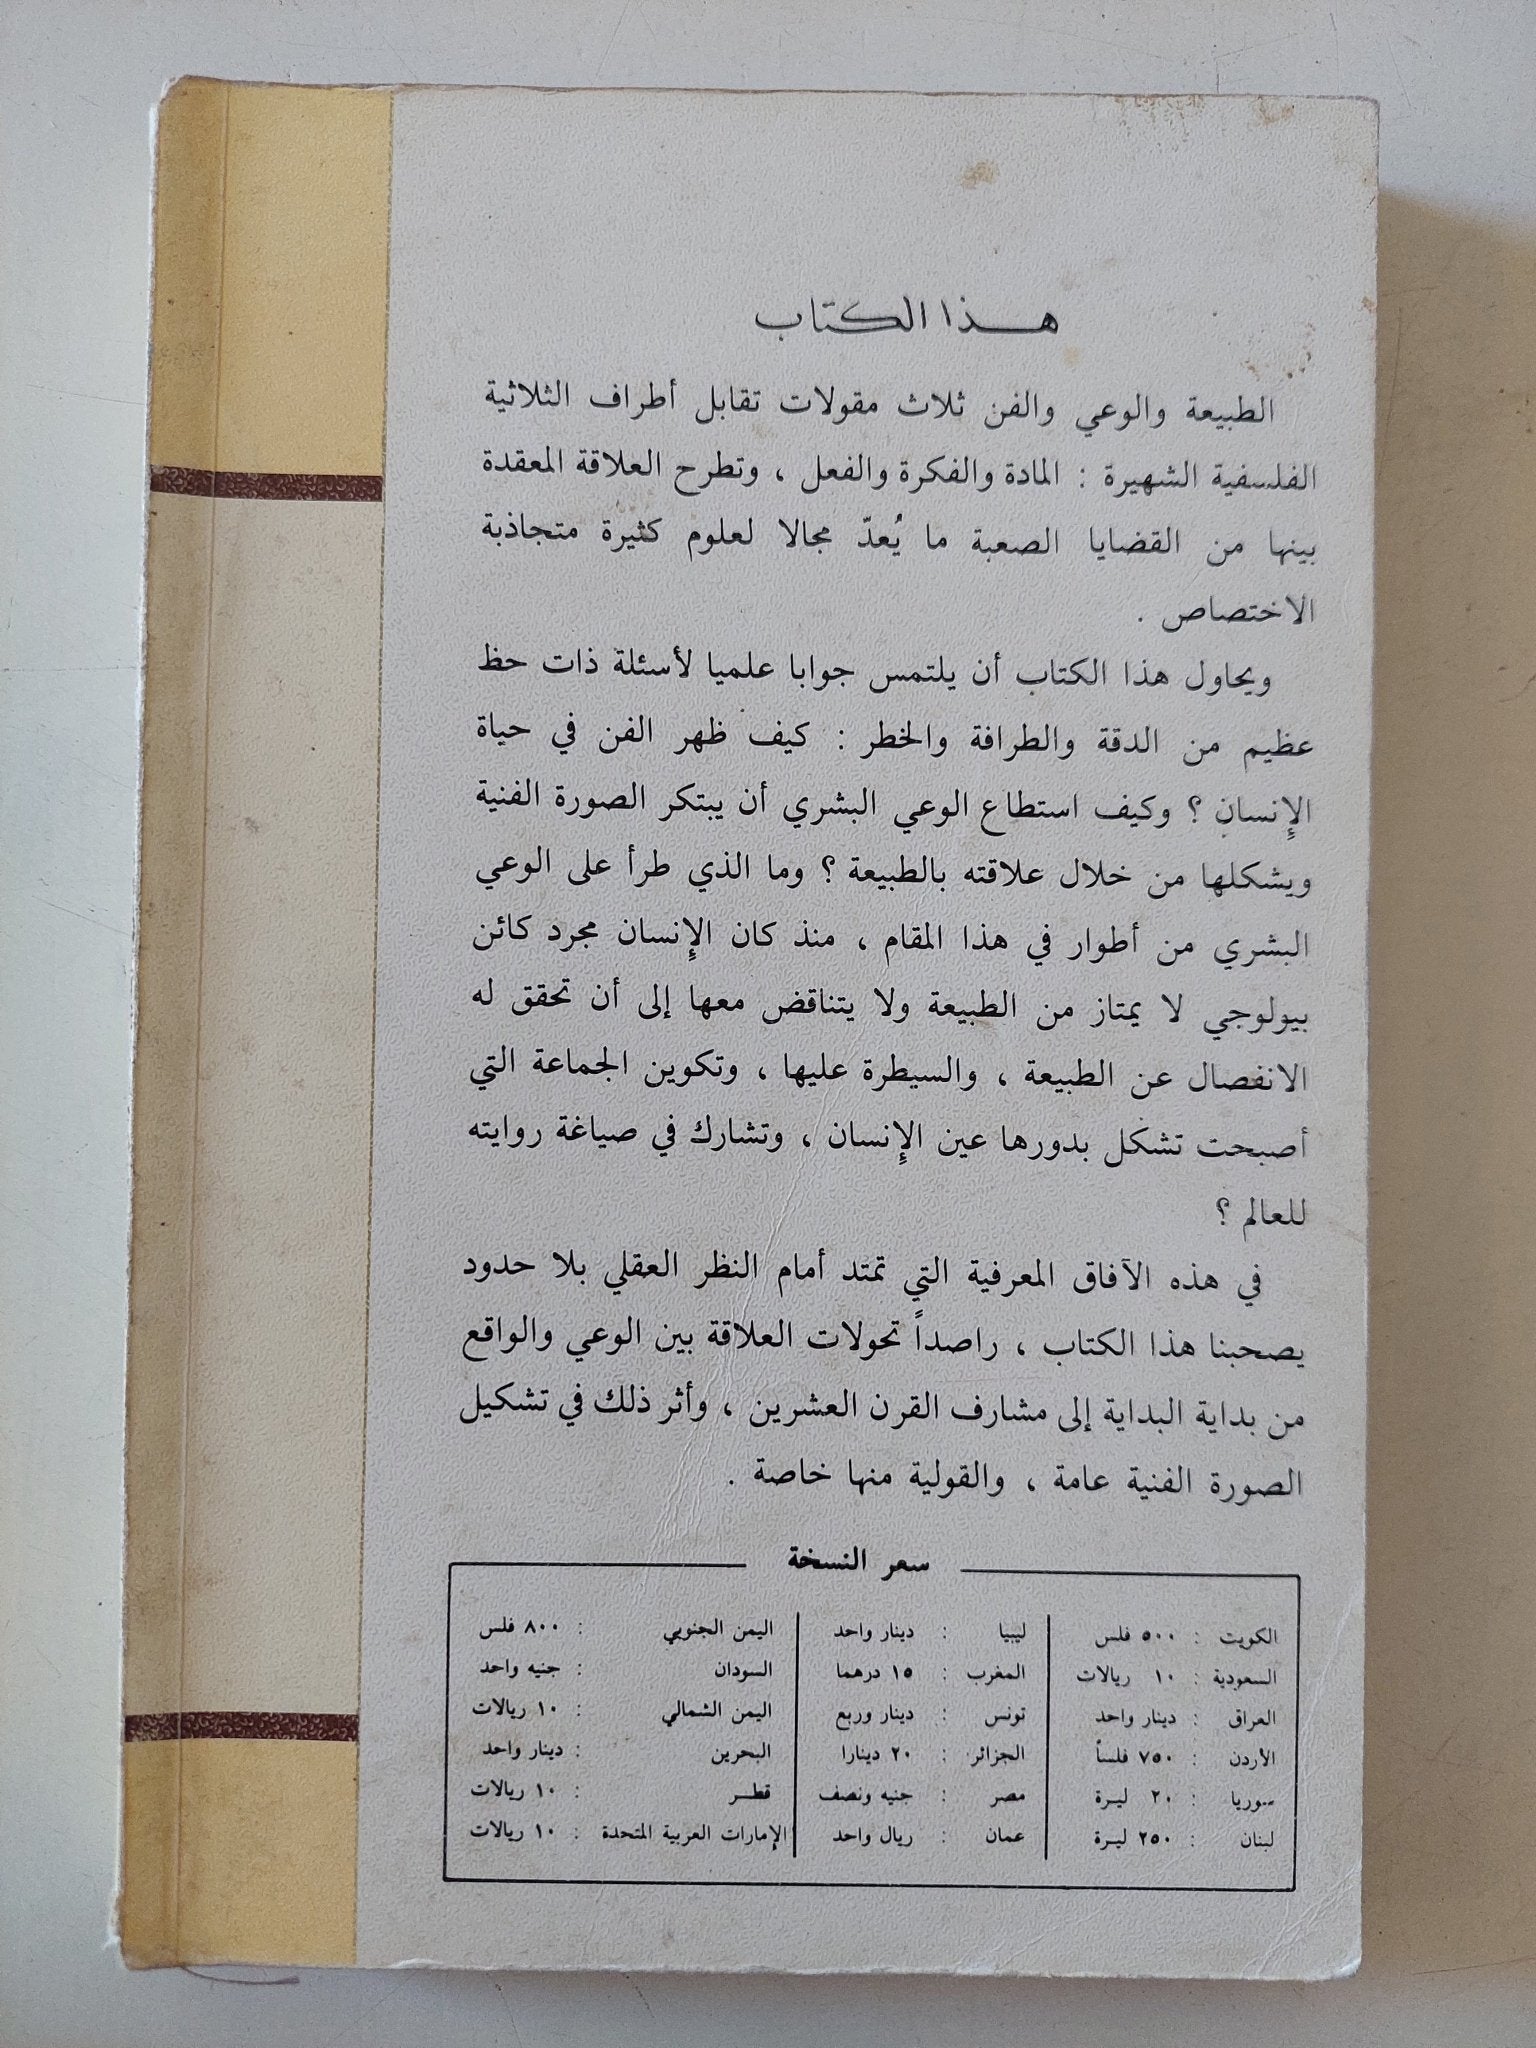 هذا الكتاب
الطبيعة والوعي والفن ثلاث مقولات تقابل أطراف الثلاثية
الفلسفية الشهيرة : المادة والفكرة والفعل ، وتطرح العلاقة المعقدة
بينها من القضايا الصعبة ما يُعدّ مجالا لعلوم كثيرة متجاذبة
الاختصاص .
ويحاول هذا الكتاب أن يلتمس جوابا علميا لأسئلة ذات حظ
عظيم من الدقة والطرافة والخطر : كيف ظهر الفن في حياة
الإنسان ؟ وكيف استطاع الوعي البشري أن يبتكر الصورة الفنية
ويشكلها من خلال علاقته بالطبيعة ؟ وما الذي طرأ على الوعي
البشري من أطوار في هذا المقام ، منذ كان الإنسان مجرد كائن
بيولوجي لا يمتاز من الطبيعة ولا يتناقض معها إلى أن تحقق له
الانفصال عن الطبيعة ، والسيطرة عليها ، وتكوين الجماعة التي
أصبحت تشكل بدورها عين الإنسان ، وتشارك في صياغة روايته
للعالم ؟
في هذه الآفاق المعرفية التي تمتد أمام النظر العقلي بلا حدود
يصحبنا هذا الكتاب ، راصداً تحولات العلاقة بين الوعي والواقع
من بداية البداية إلى مشارف القرن العشرين ، وأثر ذلك في تشكيل
الصورة الفنية عامة ، والقولية منها خاصة .
سعر النسخة
الكويت : ٥٠٠ فلس
السعودية : ١٠ ريالات
العراق : دينار واحد
الأردن : ٧٥٠ فلساً
سوريا : ٢٠ ليرة
لبنان : ٢٥٠ ليرة
ليبيا : دينار واحد
المغرب : ١٥ درهما
تونس : دينار وربع
الجزائر : ٢٠ دينارا
مصر : جنيه ونصف
عمان : ريال واحد
اليمن الجنوبي : ٨٠٠ فلس
السودان : جنيه واحد
اليمن الشمالي : ١٠ ريالات
البحرين : دينار واحد
قطــر : ١٠ ريالات
الإمارات العربية المتحدة : ١٠ ريالات